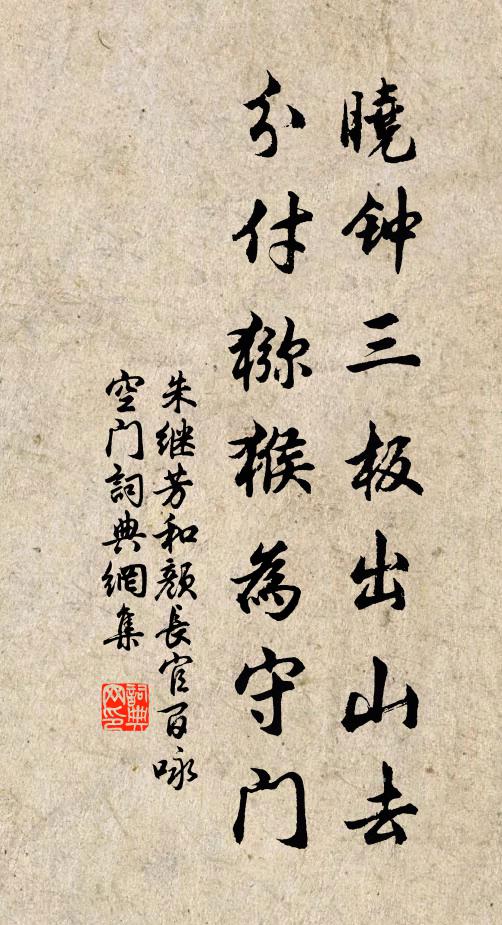 曉钟三板出山去
分付猕猴為守门
朱继芳和颜長官百咏
空门詞典網集
詞典网印